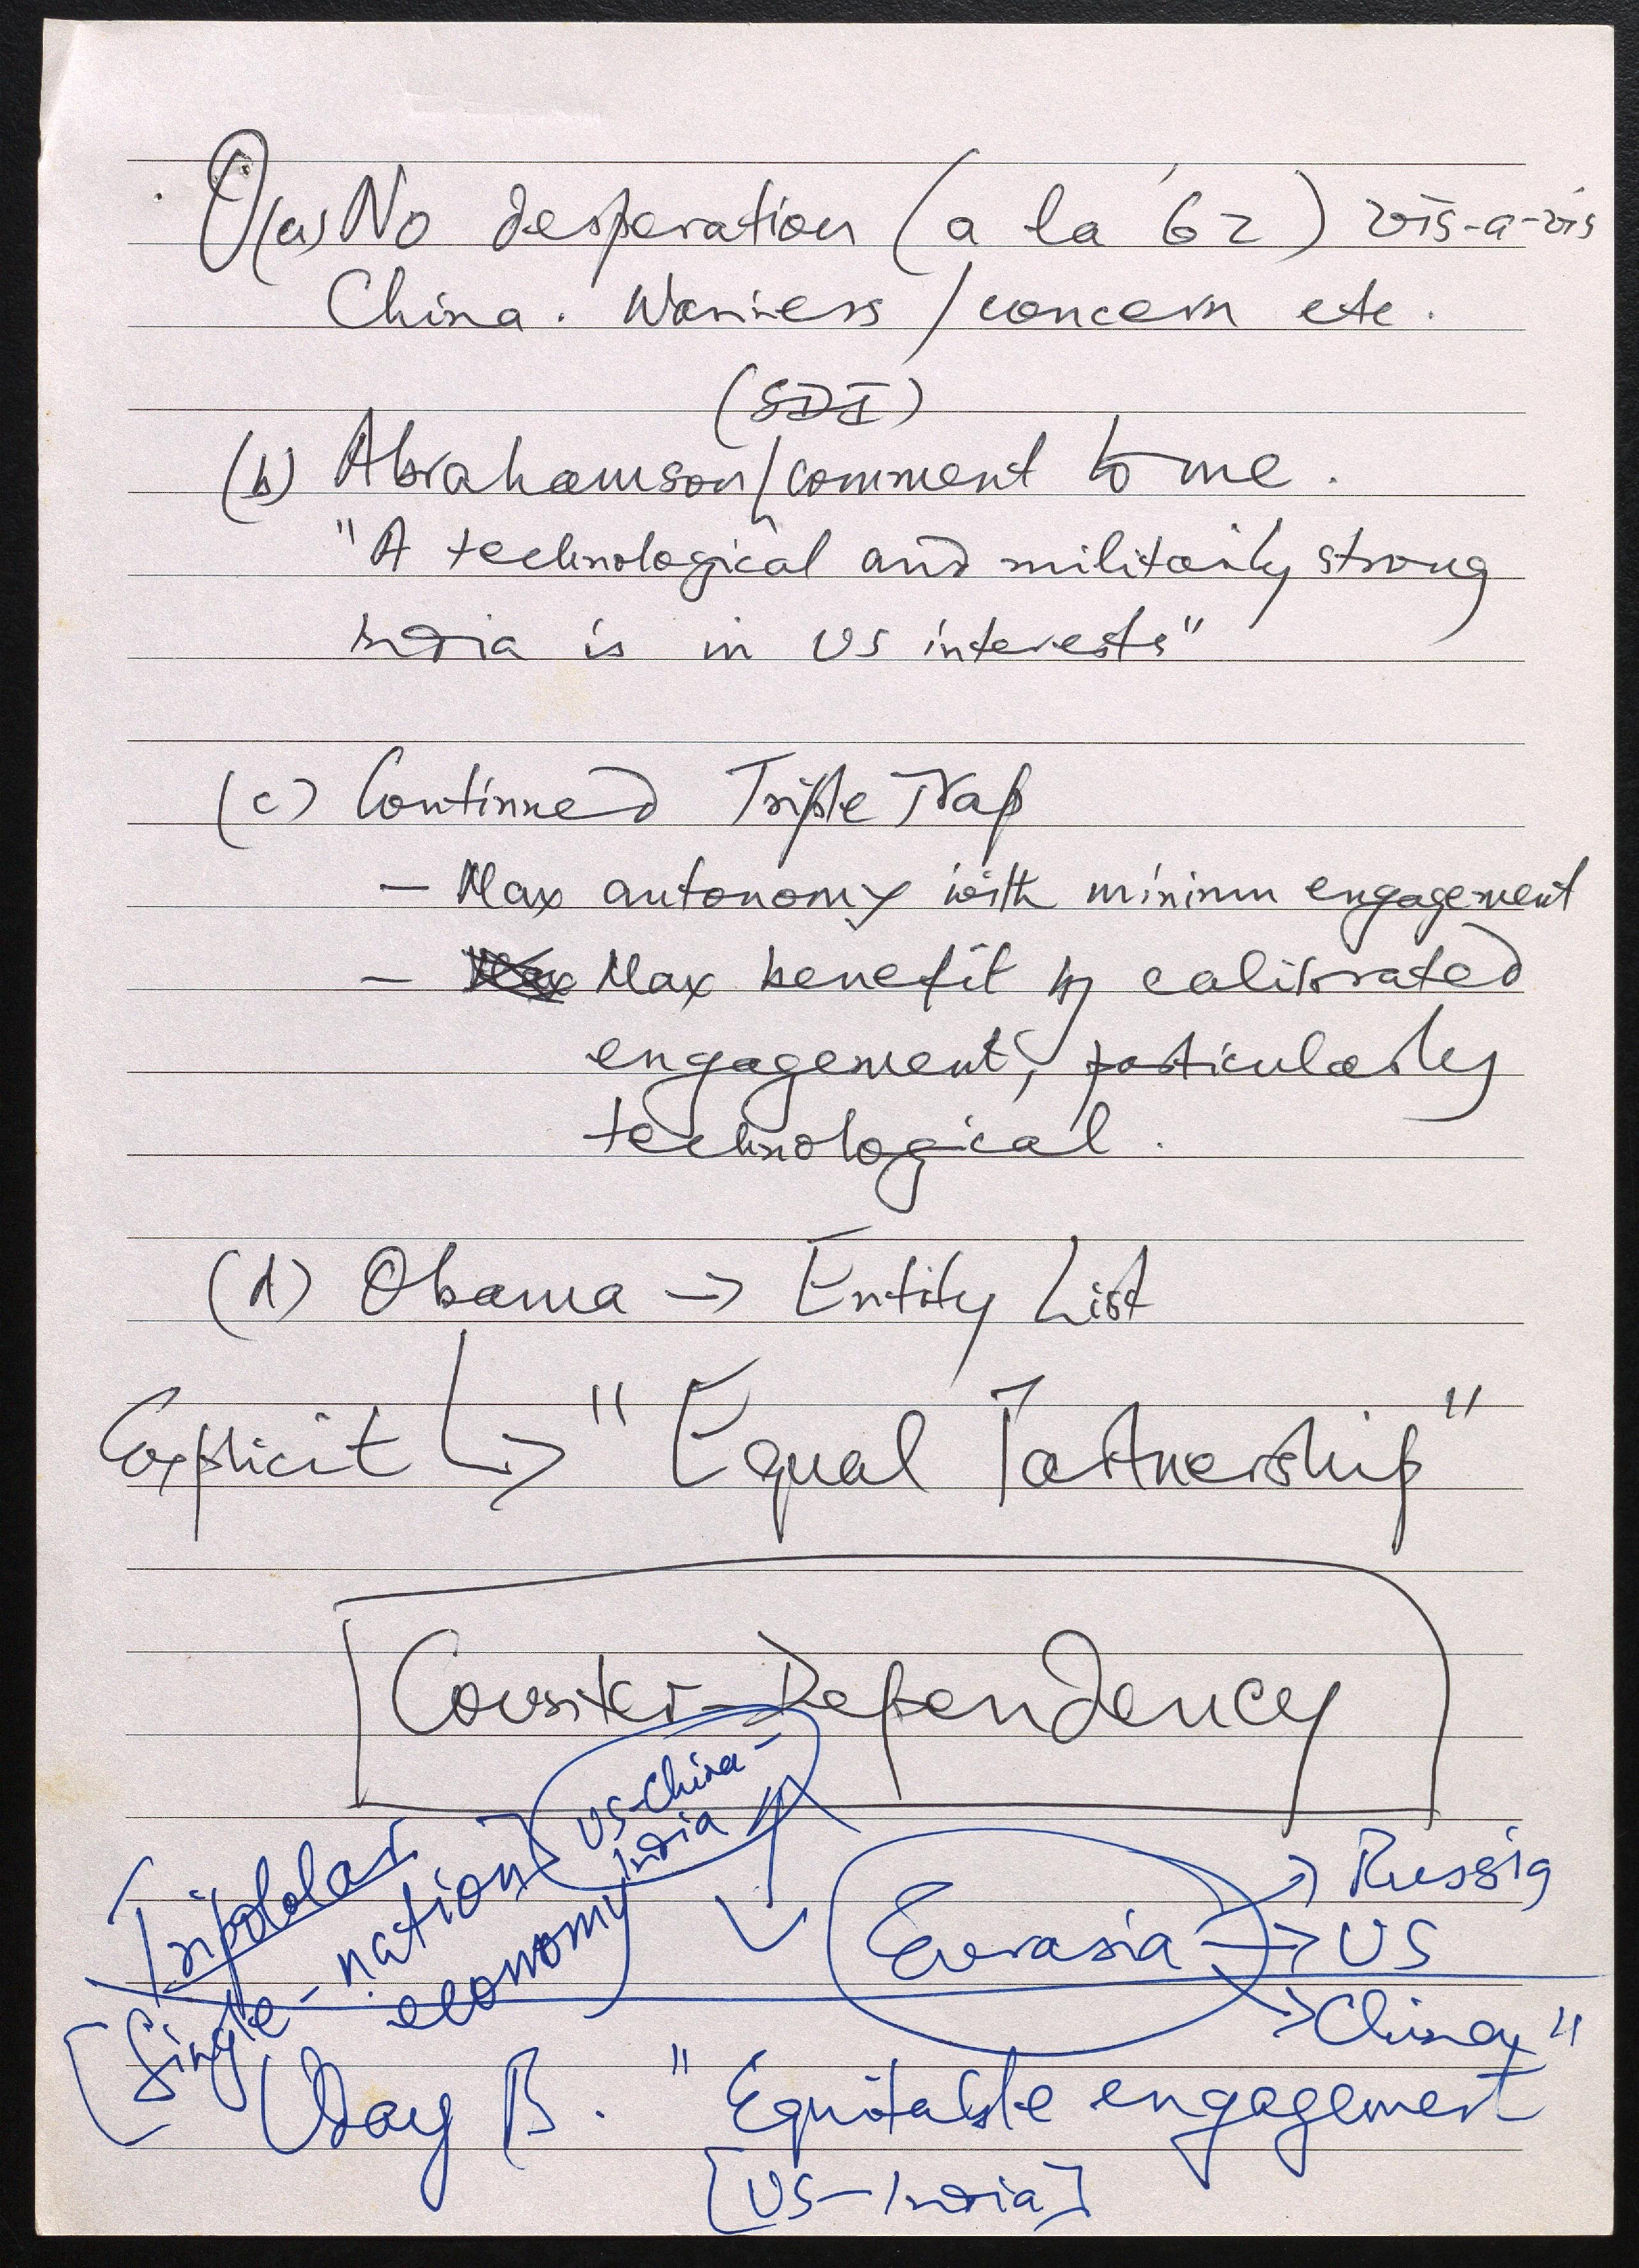 (a) No desperation (a la '62) vis-a-vis
China. Wariness / concern etc.
(SDI)
(b) Abrahamson / comment to me.
"A technological and militarily strong
India is in US interests"
(c) Continued Triple Trap
- Max autonomy with minimum engagement
- Max benefit by calibrated
engagement, particularly
technological.
(d) Obama → Entity List
Explicit ↳ "Equal Partnership"
Counter-Dependency
US-China-
India
Tripolar
[Single-nation
economy
Eurasia → Russia
→ US
→ China
Uday B. "Equitable engagement"
[US-India]